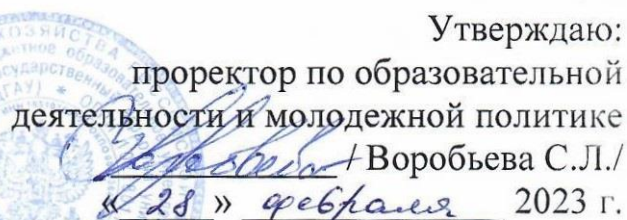 Утверждаю:
проректор по образовательной
деятельности и молодежной политике
/ Воробьева С.Л./
« 28 » февраля 2023 г.